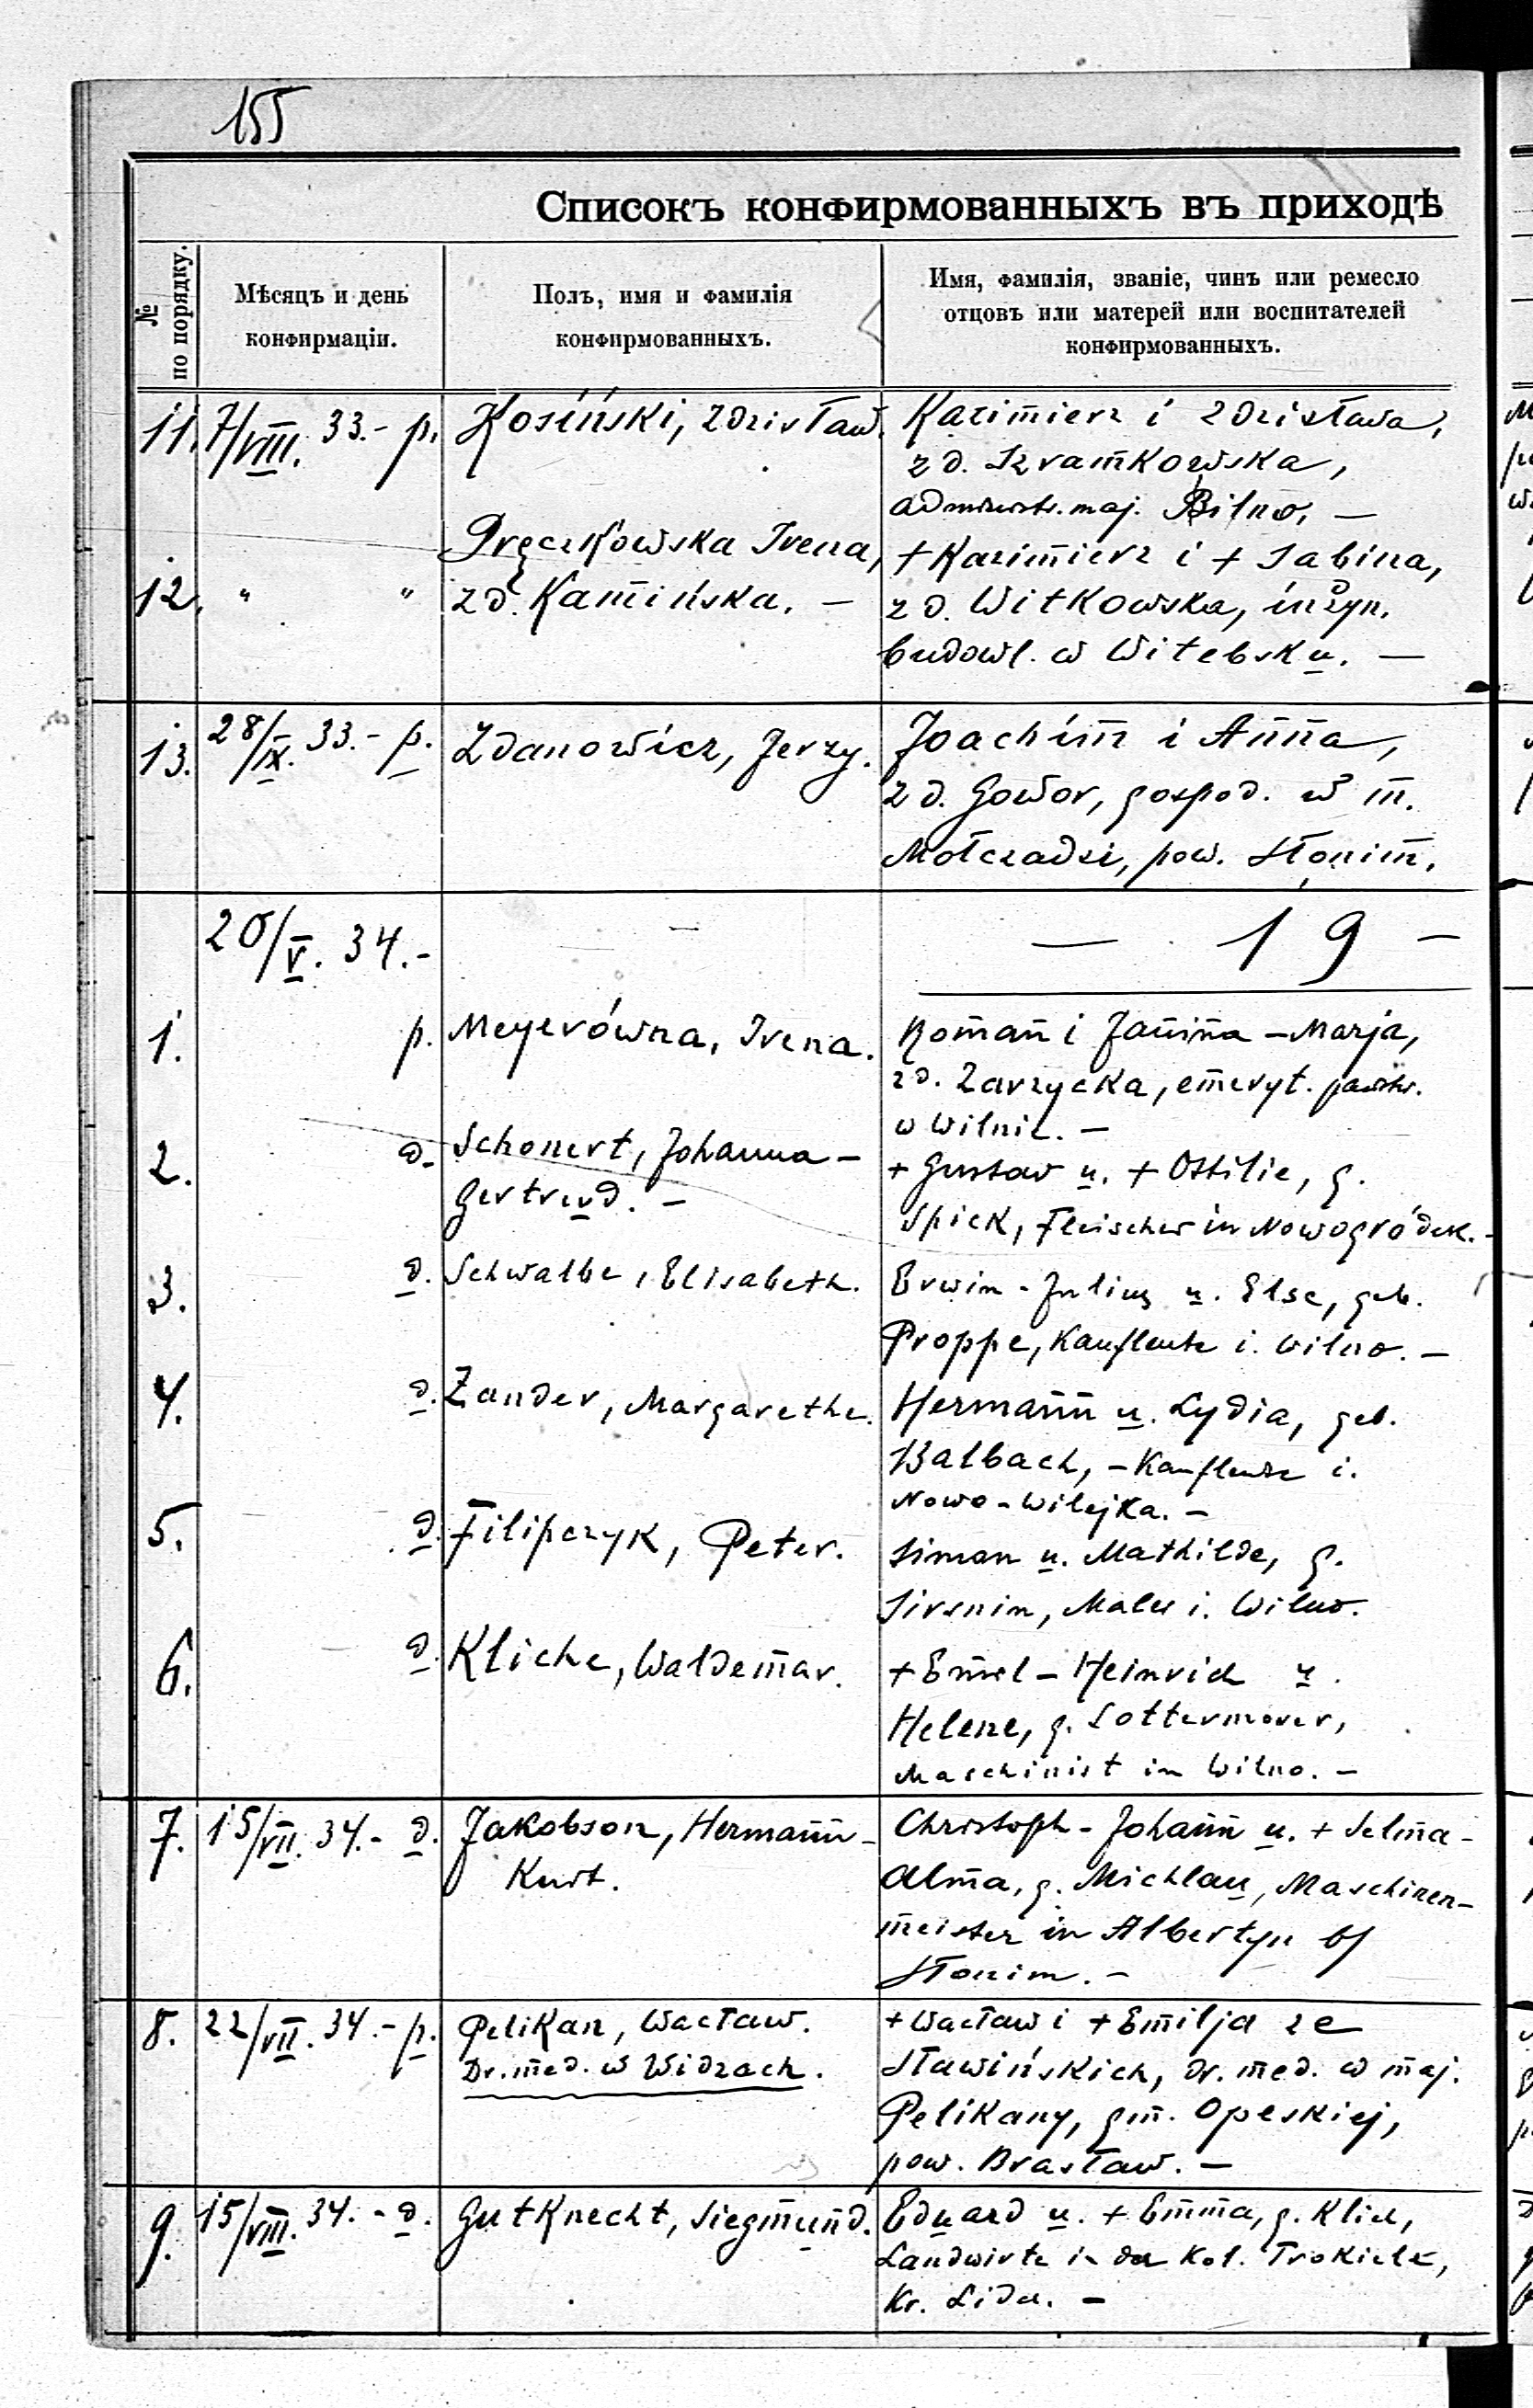 155
Списокъ конфирмованныхъ въ приходѣ
№ по порядку.
Мѣсяцъ и день
конфирмаціи.
Полъ, имя и фамилія
конфирмованныхъ.
Имя, фамилія, званіе, чинъ или ремесло
отцовъ или матерей или воспитателей
конфирмованныхъ.
11. 7/VIII. 33.- p. Kosiński, Zdzisław. Kazimierz i Zdzisława,
z d. Szramkowska,
administr. maj. Bilno. —
Pręczkowska Irena, + Kazimierz i + Sabina,
12. " " z d. Kamińska. — z d. Witkowska, inżyn.
budowl. w Witebsku. —
13. 28/IX. 33.- p. Zdanowicz, Jerzy. Joachim i Anna,
z d. Gowor, gospod. w m.
Mołczadzi, pow. Słonim.
20/V. 34.- — — 19 —
1. p. Meyerówna, Irena. Roman i Janina-Marja,
z d. Zarzycka, emeryt. państw.
w Wilnie. —
2. d. Schonert, Johanna- + Gustav u. + Ottilie, g.
Gertrud. — Spick, Fleischer in Nowogródek. -
3. d. Schwalbe, Elisabeth. Erwin-Julius u. Else, geb.
Proppe, Kaufleute i. Wilno. —
4. d. Zander, Margarethe. Hermann u. Lydia, geb.
Balbach, - Kaufleute i.
Nowo-Wilejka. —
5. d. Filipczyk, Peter. Simon u. Mathilde, g.
Sirenin, Maler i. Wilno.
6. d. Kliche, Waldemar. + Emil-Heinrich u.
Helene, g. Lottermoser,
Maschinist in Wilno. —
7. 15/VII. 34.- d. Jakobson, Hermann- Christoph-Johann u. + Selma-
Kurt. Alma, g. Michlau, Maschinen-
meister in Albertyn b/
Słonim. —
8. 22/VII. 34.- p. Pelikan, Wacław. + Wacław i + Emilja ze
Dr. med. w Widzach. Sławińskich, dr. med. w maj.
Pelikany, gm. Opeskiej,
pow. Brasław. —
9. 15/VIII. 34.- d. Gutknecht, Siegmund. Eduard u. + Emma, g. Klick,
Landwirte in der Kol. Trokiele,
Kr. Lida. —